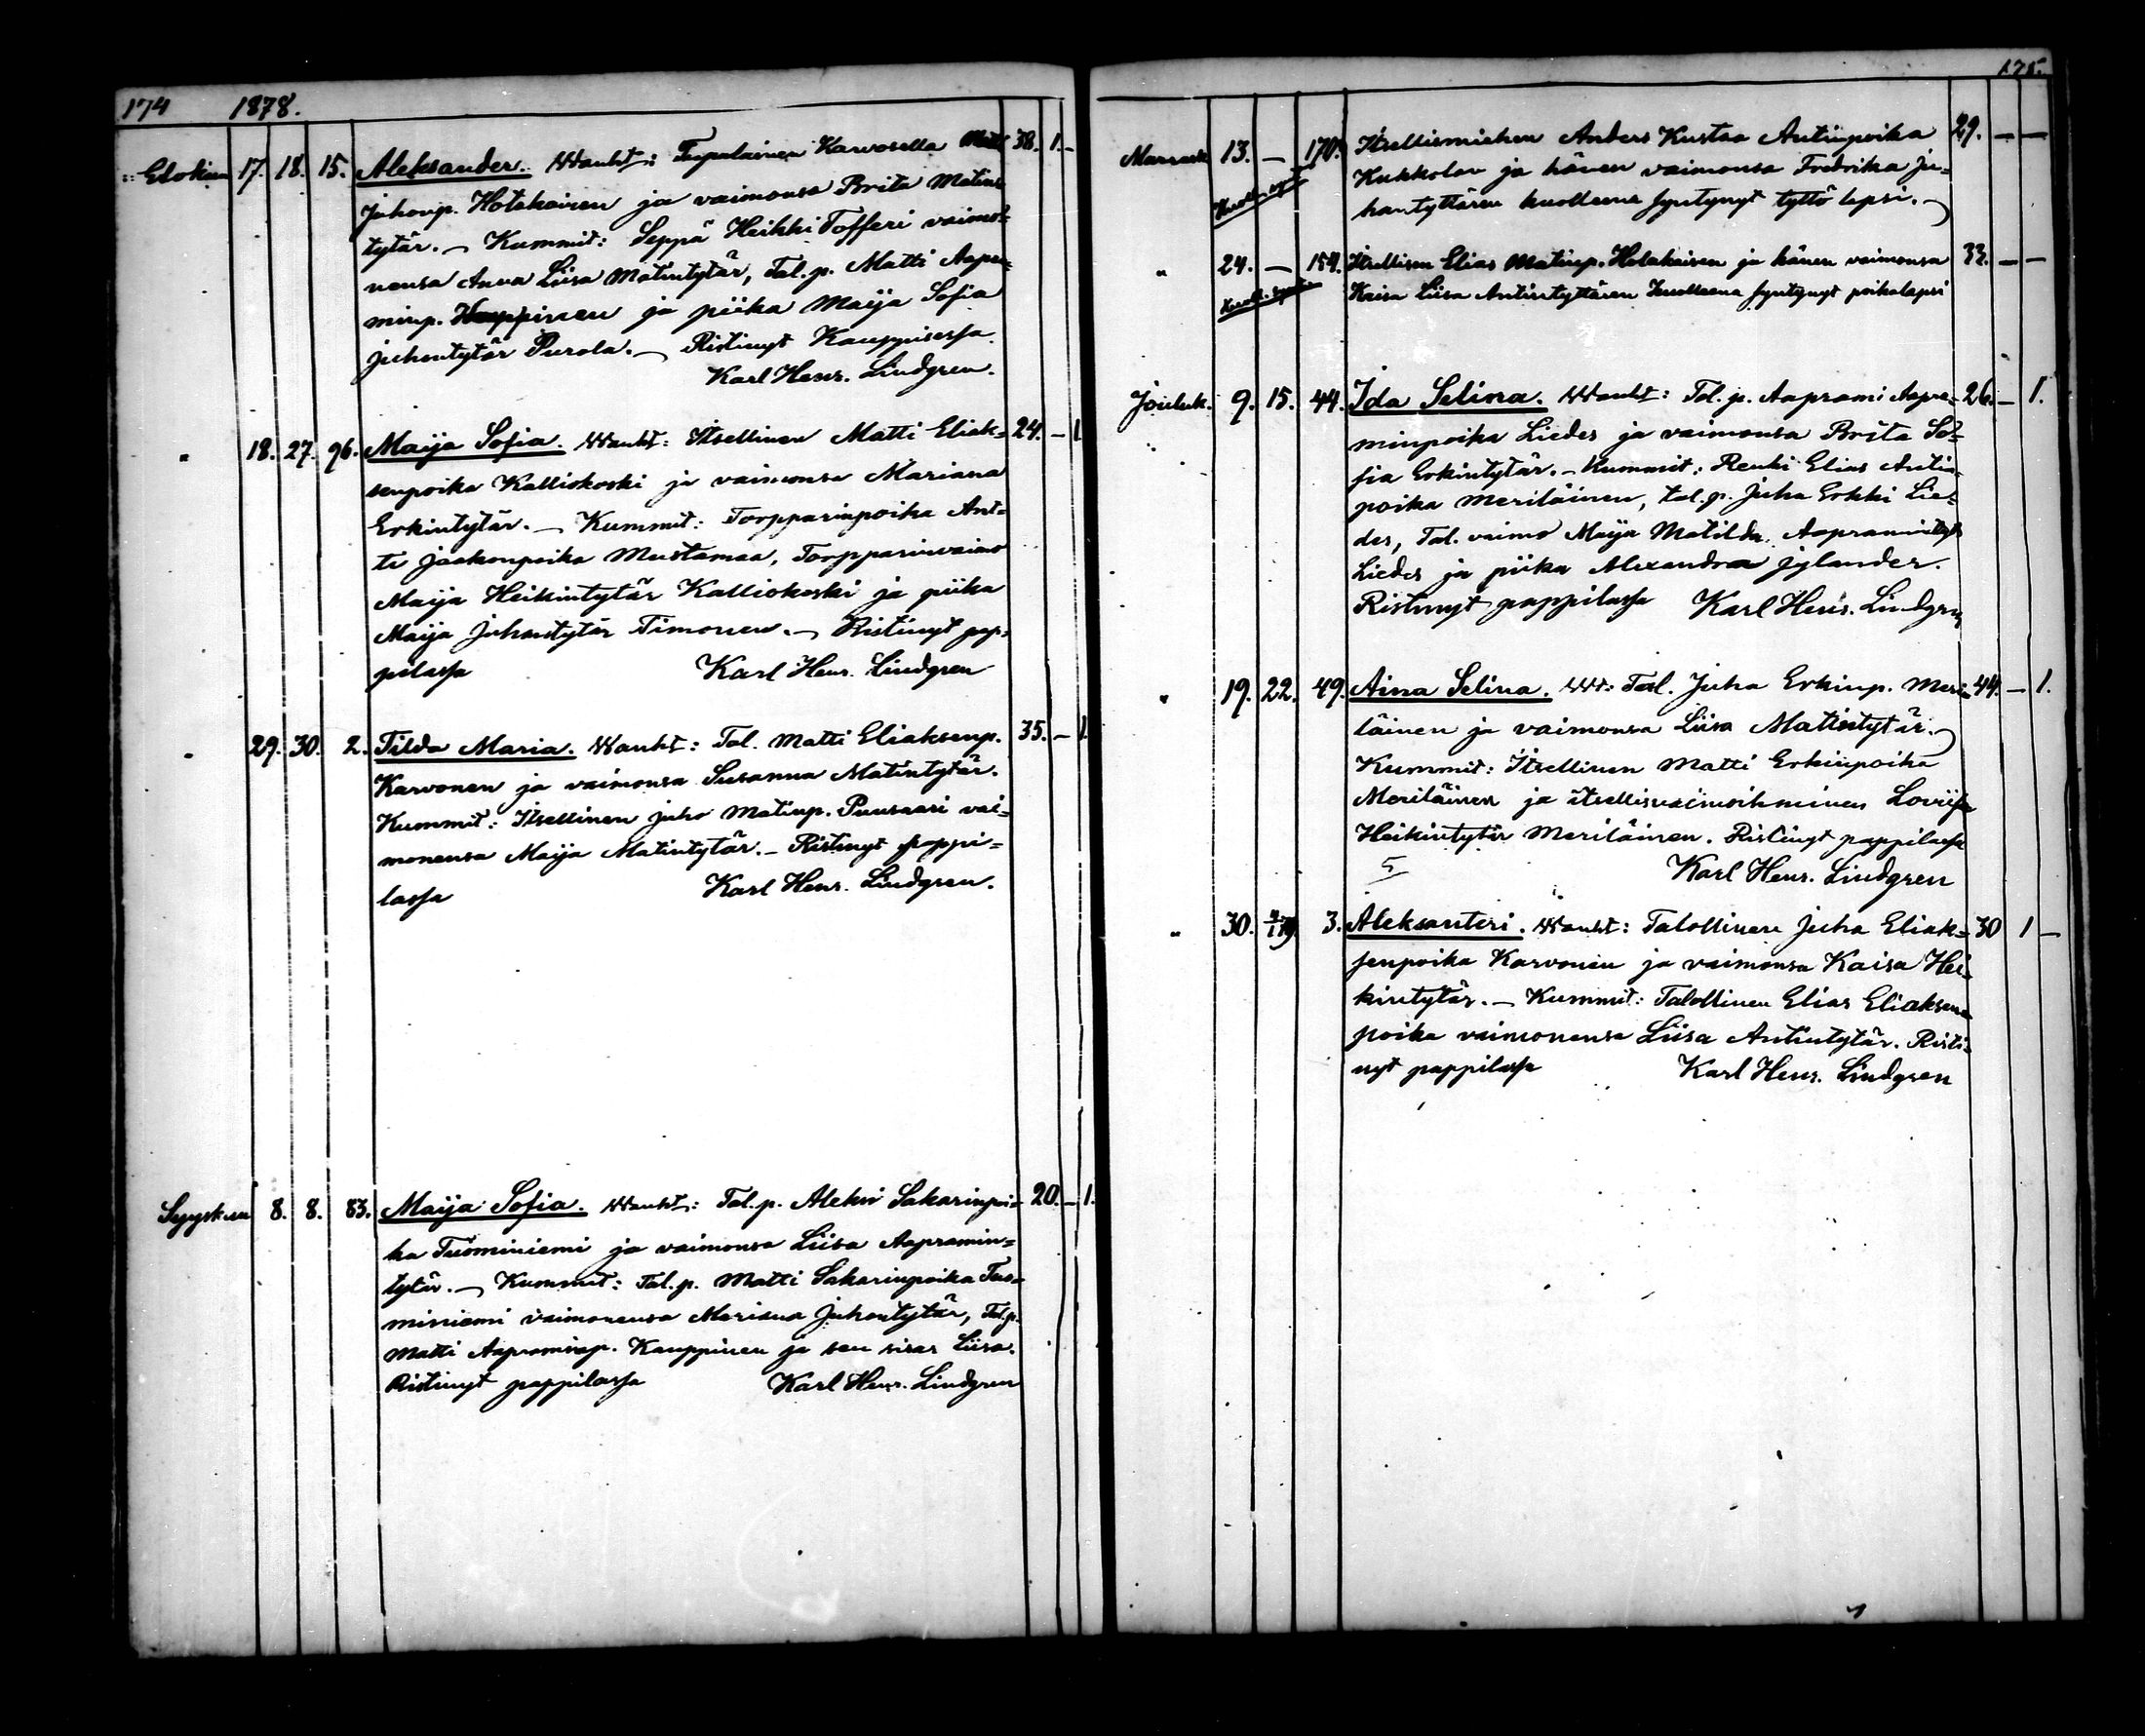 174 1878.
Elokuu 17. 18. 15. Aleksander. Wanht: Karvosella Matti 38. 1. –
Juhonp. Hotakainen ja vaimonsa Brita Matin-
tytär. – Kummit: Seppä Heikki Tofferi vaimo-
nensa Anna Liisa Matintytär, Tal. p. Matti Aapra-
minp. Kauppinen ja piika Maija Sofia
Juhontytär Purola. – Ristinyt Kauppisessa.
Karl Henr. Lindgren.
" 18. 27. 96. Maija Sofia. Wanht: Itsellinen Matti Eliak= 24. – 1
senpoika Kalliokoski ja vaimonsa Mariana
Erkintytär. – Kummit: Torpparinpoika Ant=
ti Jaakonpoika Mustamaa, Torpparinvaimo
Maija Heikintytär Kalliokoski ja piika
Maija Juhontytär Timonen. – Ristinyt pap=
pilassa Karl Henr. Lindgren
" 29. 30. 2. Tilda Maria. Wanht: Tal. Matti Eliaksenp. 35. – 1.
Karvonen ja vaimonsa Susanna Matintytär.
Kummit: Itsellinen Juho Matinp. Puusaari vai=
monensa Maija Matintytär. – Ristinyt pappi=
lassa Karl Henr. Lindgren.
Syyskuu 8. 8. 83. Maija Sofia. Wanht: Tal. p. Aleksi Sakarinpoi- 20. – 1.
ka Tuominiemi ja vaimonsa Liisa Aapramin=
tytär. – Kummit: Tal. p. Matti Sakarinpoika Tuo=
miniemi vaimonensa Mariana Juhontytär, Tal. p.
Matti Aapraminp. Kauppinen ja sen sisar Liisa.
Ristinyt pappilassa Karl Henr. Lindgren
175.
Marrask. 13. – 170. Itsellismiehen Anders Kustaa Antinpoika 29. – –
Kukkolan ja hänen vaimonsa Fredrika Ju=
hantyttären kuolleena syntynyt tyttö lapsi. –
" 24. – 154. Itsellisen Elias Matinp. Hotakaisen ja hänen vaimonsa 33. – –
Kaisa Liisa Antintyttären kuolleena syntynyt poikalapsi
Jouluk. 9. 15. 44. Ida Selina. Wanht: Tal. p. Aaprami Aapra- 26. – 1.
minpoika Liedes ja vaimonsa Brita So=
fia Erkintytär. – Kummit: Renki Elias Antin-
poika Meriläinen, tal. p. Juha Erkki Lie=
des, Tal. vaimo Maija Matilda Aapramintytär
Liedes ja piika Alexandra Jylander.
Ristinyt pappilassa Karl Henr. Lindgren
" 19. 22. 49. Aina Selina. Wht: Tal. Juha Erkinp. Meri= 44. – 1.
läinen ja vaimonsa Liisa Matintytär. –
Kummit: Itsellinen Matti Erkinpoika
Meriläinen ja itsellisvaimoihminen Loviisa
Heikintytär Meriläinen. Ristinyt pappilassa
5 Karl Henr. Lindgren
" 30. 3. Aleksanteri. Wanht: Talollinen Juha Eliak= 30 1 –
senpoika Karvonen ja vaimonsa Kaisa Hei=
kintytär. – Kummit: Talollinen Elias Eliaksen=
poika vaimonensa Liisa Antintytär. Risti=
nyt pappilassa Karl Henr. Lindgren